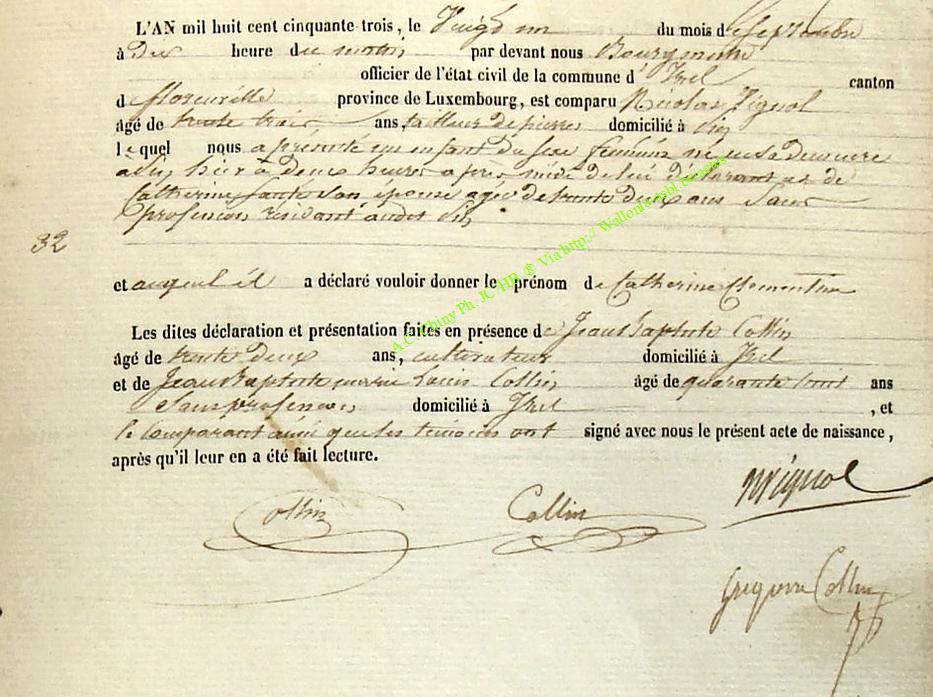 L'AN mil huit cent cinquante-trois, le Vingt un du mois de Septembre
à Dix heure du matin par devant nous Bourgmestre
officier de l'état civil de la commune d' Izel canton
d florenville province de Luxembourg, est comparu Nicolas Vignol
âgé de trente trois ans, tailleur de pierres domicilié à
lequel nous a présenté un enfant du sexe féminin né en sa demeure
hier à deux heures après midi de lui déclarant et de
Catherine son épouse agée de trente deux ans Sans
profession résidant audit
32
et auquel il a déclaré vouloir donner le prénom de Catherine Clementine
Les dites déclaration et présentation faites en présence de Jean Baptiste Collin
âgé de trente deux ans, cultivateur domicilié à Izel
et de Jean Baptiste Louis Collin âgé de quarante ans
Sans profession domicilié à Izel , et
le comparant ainsi que les temoins ont signé avec nous le présent acte de naissance,
après qu'il leur en a été fait lecture.
Collin Collin NVignol
Collin
A.C. Chiny Ph. JC HB ® Via http://Wallonia asbl